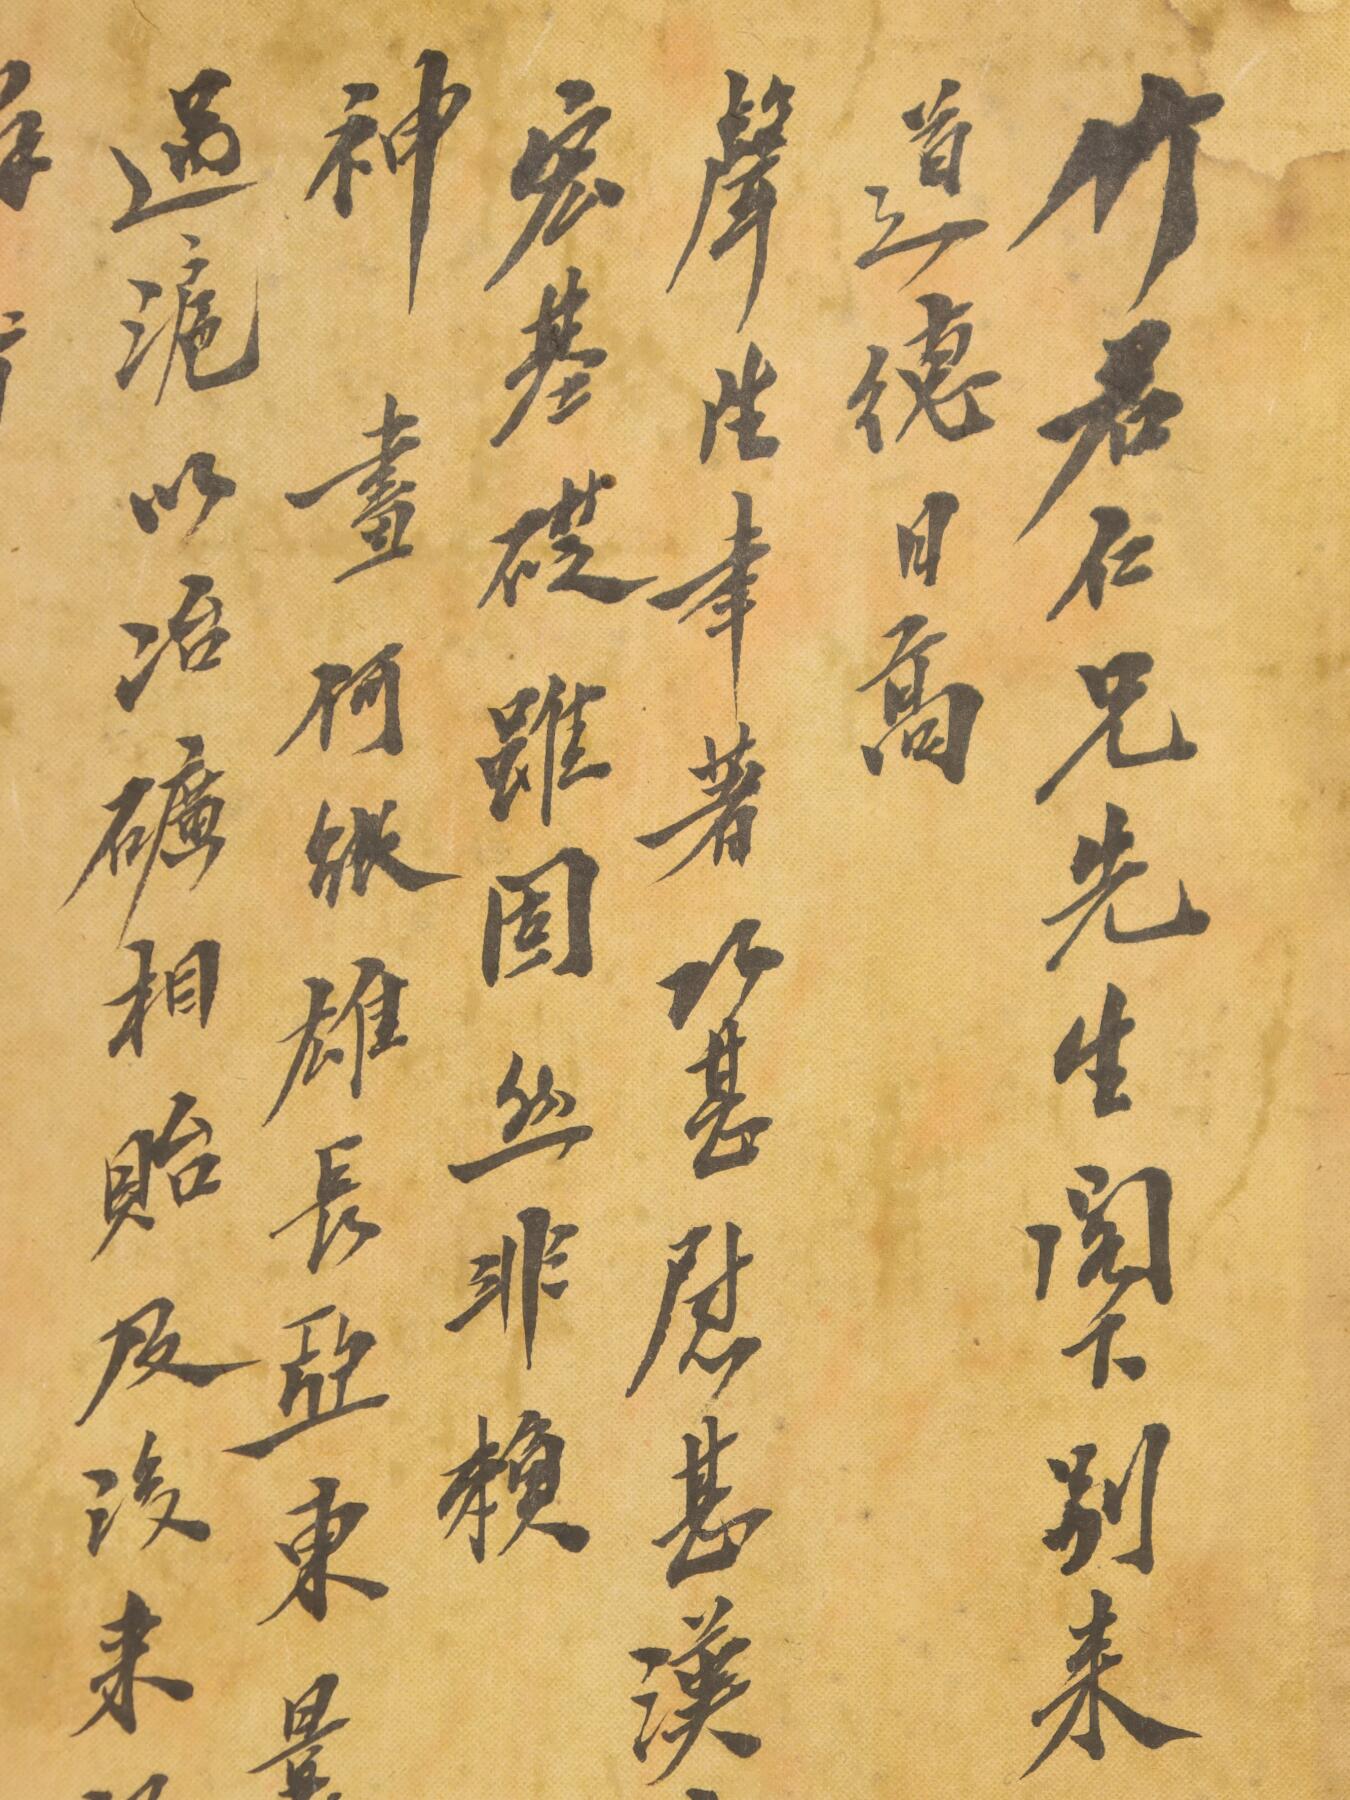 竹君仁兄先生閣下別来
道德日高
聲生聿著以甚慰甚漢
宏基礎雖固然非賴
神畫何能雄長亞東景
過滬以冶礦相貽及後来